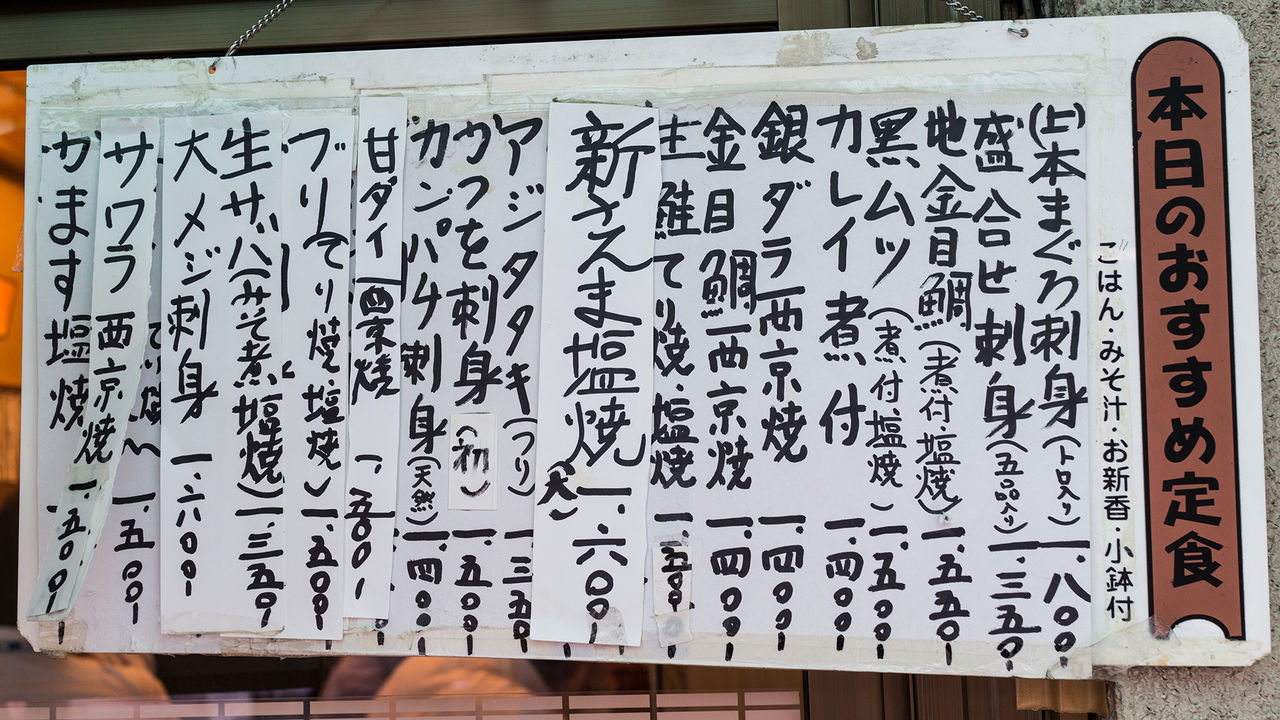 本日のおすすめ定食
ごはん・みそ汁・お新香・小鉢付
(上)本まぐろ刺身(トロ入り)一、八〇〇
盛合せ刺身(五品入り)一、三五〇
地金目鯛(煮付、塩焼)一、五五〇
黒ムツ(煮付、塩焼)一、五〇〇
カレイ煮付 一、四〇〇
銀ダラ西京焼 一、四〇〇
金目鯛西京焼 一、四〇〇
生鮭てり焼、塩焼 一、五〇〇
新さんま塩焼(大)一、六〇〇
アジタタキ(つり)一、三五〇
カツオ刺身(初)一、五〇〇
カンパチ刺身(天然)一、四〇〇
甘ダイ西京焼 一、五〇〇
ブリてり焼、塩焼 一、五〇〇
生サバ(みそ煮、塩焼)一、三五〇
大メジ刺身 一、六〇〇
一、五〇〇
サワラ西京焼 一、五〇〇
かます塩焼